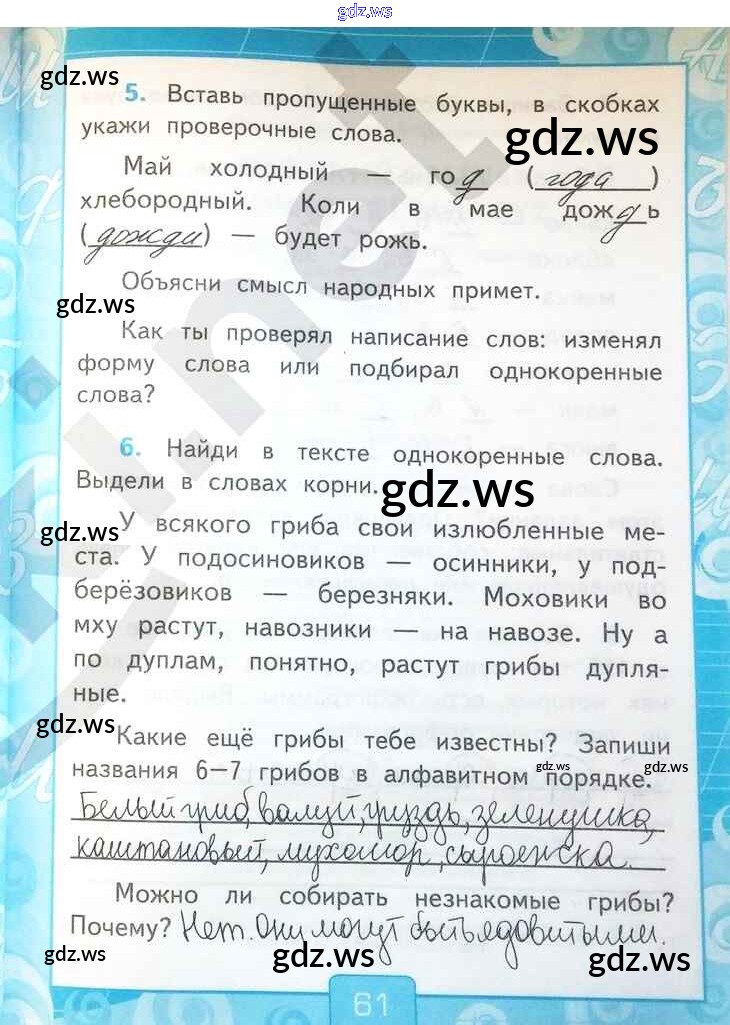 gdz.ws
gdz.ws
5. Вставь пропущенные буквы, в скобках
укажи проверочные слова.
gdz.ws
Май холодный — год (года)
хлебородный. Коли в мае дождь
(дожди) — будет рожь.
Объясни смысл народных примет.
gdz.ws
Как ты проверял написание слов: изменял
форму слова или подбирал однокоренные
слова?
6. Найди в тексте однокоренные слова.
Выдели в словах корни.
gdz.ws
gdz.ws
У всякого гриба свои излюбленные ме-
ста. У подосиновиков — осинники, у под-
берёзовиков — березняки. Моховики во
мху растут, навозники — на навозе. Ну а
по дуплам, понятно, растут грибы дупля-
ные.
gdz.ws
Какие ещё грибы тебе известны? Запиши
gdz.ws gdz.ws
названия 6–7 грибов в алфавитном порядке.
Белый гриб, валуй, груздь, зеленушка,
каштановый, мухомор, сыроежка.
Можно ли собирать незнакомые грибы?
Почему? Нет. Они могут быть ядовитыми.
gdz.ws gdz.ws gdz.ws
61